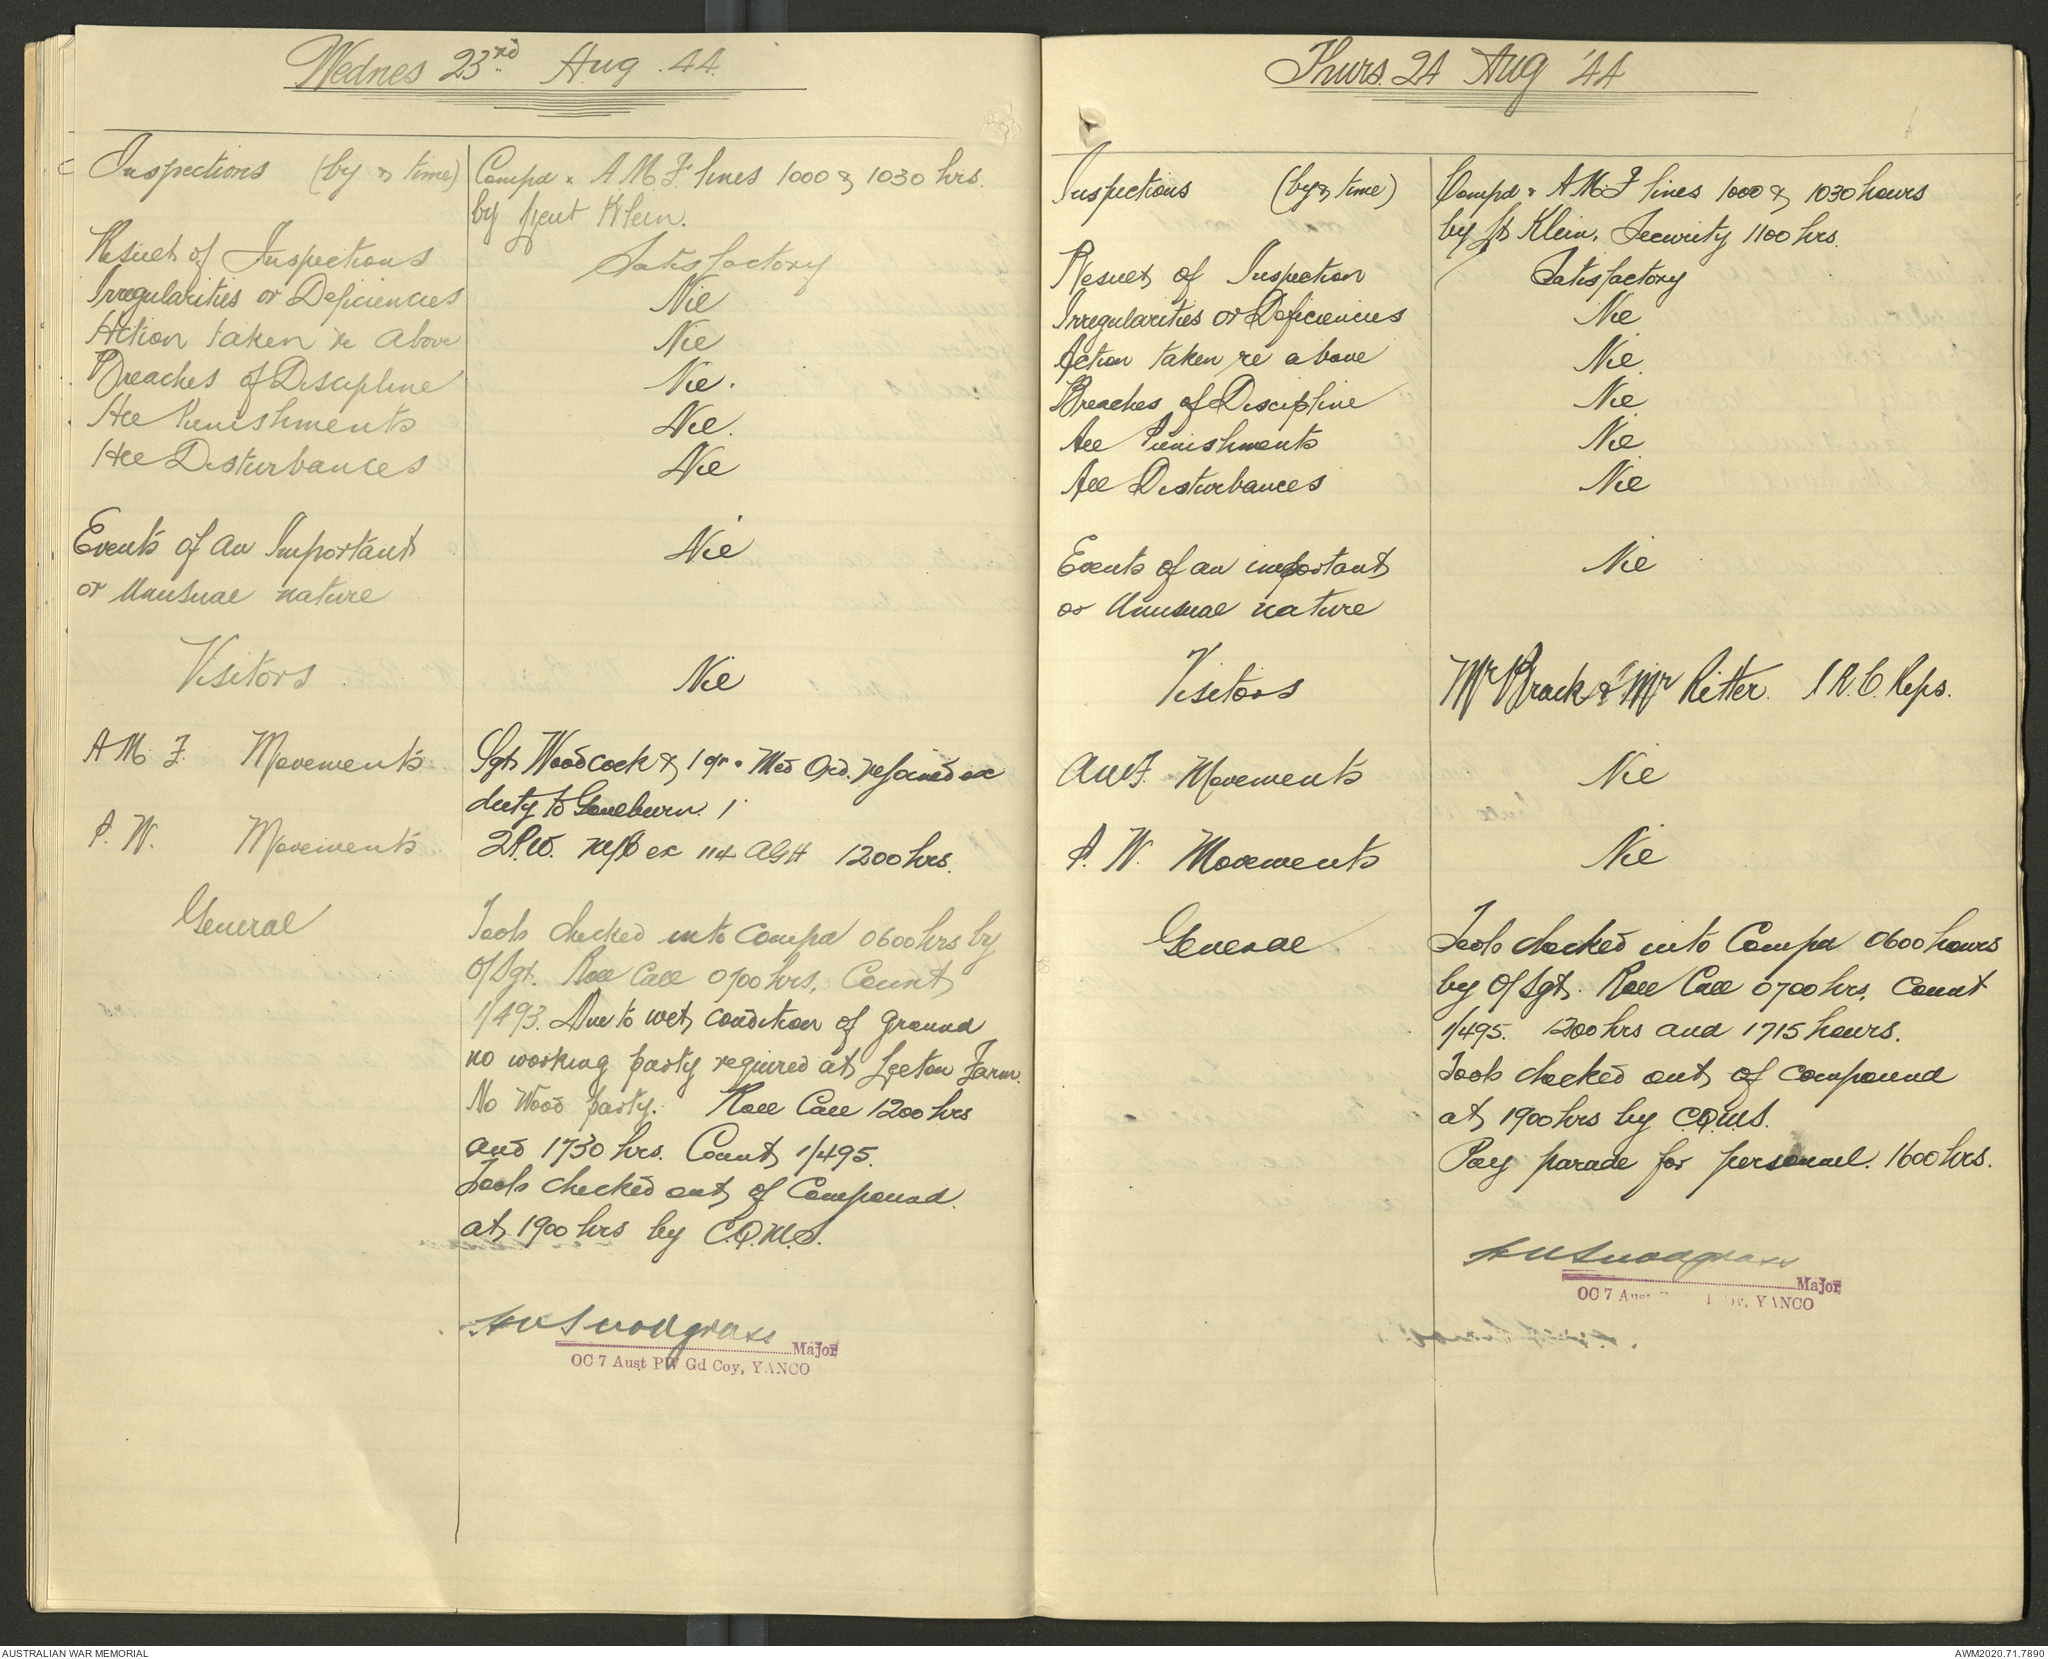 Wednes 23rd Aug. 44
Inspections (by & time) Compd & A.M.F. lines 1000 & 1030 hrs.
by Lieut Klein.
Result of Inspections Satisfactory
Irregularities or Deficiencies Nil
Action taken re above Nil
Breaches of Discipline Nil.
All Punishments Nil.
All Disturbances Nil
Events of an Important Nil
or Unusual nature
Visitors Nil
A.M.F. Movements Sgt Woodcock & 1 gr. Med Ord. rejoined ex
duty to Goulburn.
P.W. Movements 2P.W. ex 114 AGH 1200 hrs.
General Tools checked into Compd 0600 hrs by
O/Sgt. Roll Call 0700 hrs, Count
1/493. Due to wet condition of ground
no working party required at Leeton Farm.
No Wood party. Roll Call 1200 hrs
and 1730 hrs. Count 1/495.
Tools checked out of Compound
at 1900 hrs by C.Q.M.S.
Snodgrass
Major
OC 7 Aust PW Gd Coy, YANCO
Thurs. 24 Aug '44
Inspections (by & time) Compd & A.M.F lines 1000 & 1030 hours
by Lt Klein, Security 1100 hrs.
Result of Inspection Satisfactory
Irregularities or Deficiencies Nil
Action taken re above Nil.
Breaches of Discipline Nil
All Punishments Nil
All Disturbances Nil
Events of an important Nil
or Unusual nature
Visitors Mr Brack & Mr Ritter. I.R.C. Reps.
AMF. Movements Nil
P.W. Movements Nil
General Tools checked into Compd 0600 hours
by O/Sgt. Roll Call 0700 hrs. Count
1/495. 1200 hrs and 1715 hours.
Tools checked out of compound
at 1900 hrs by CQMS.
Pay parade for personnel. 1600 hrs.
Snodgrass
Major
OC 7 Aust YANCO
AUSTRALIAN WAR MEMORIAL AWM2020.71.7890